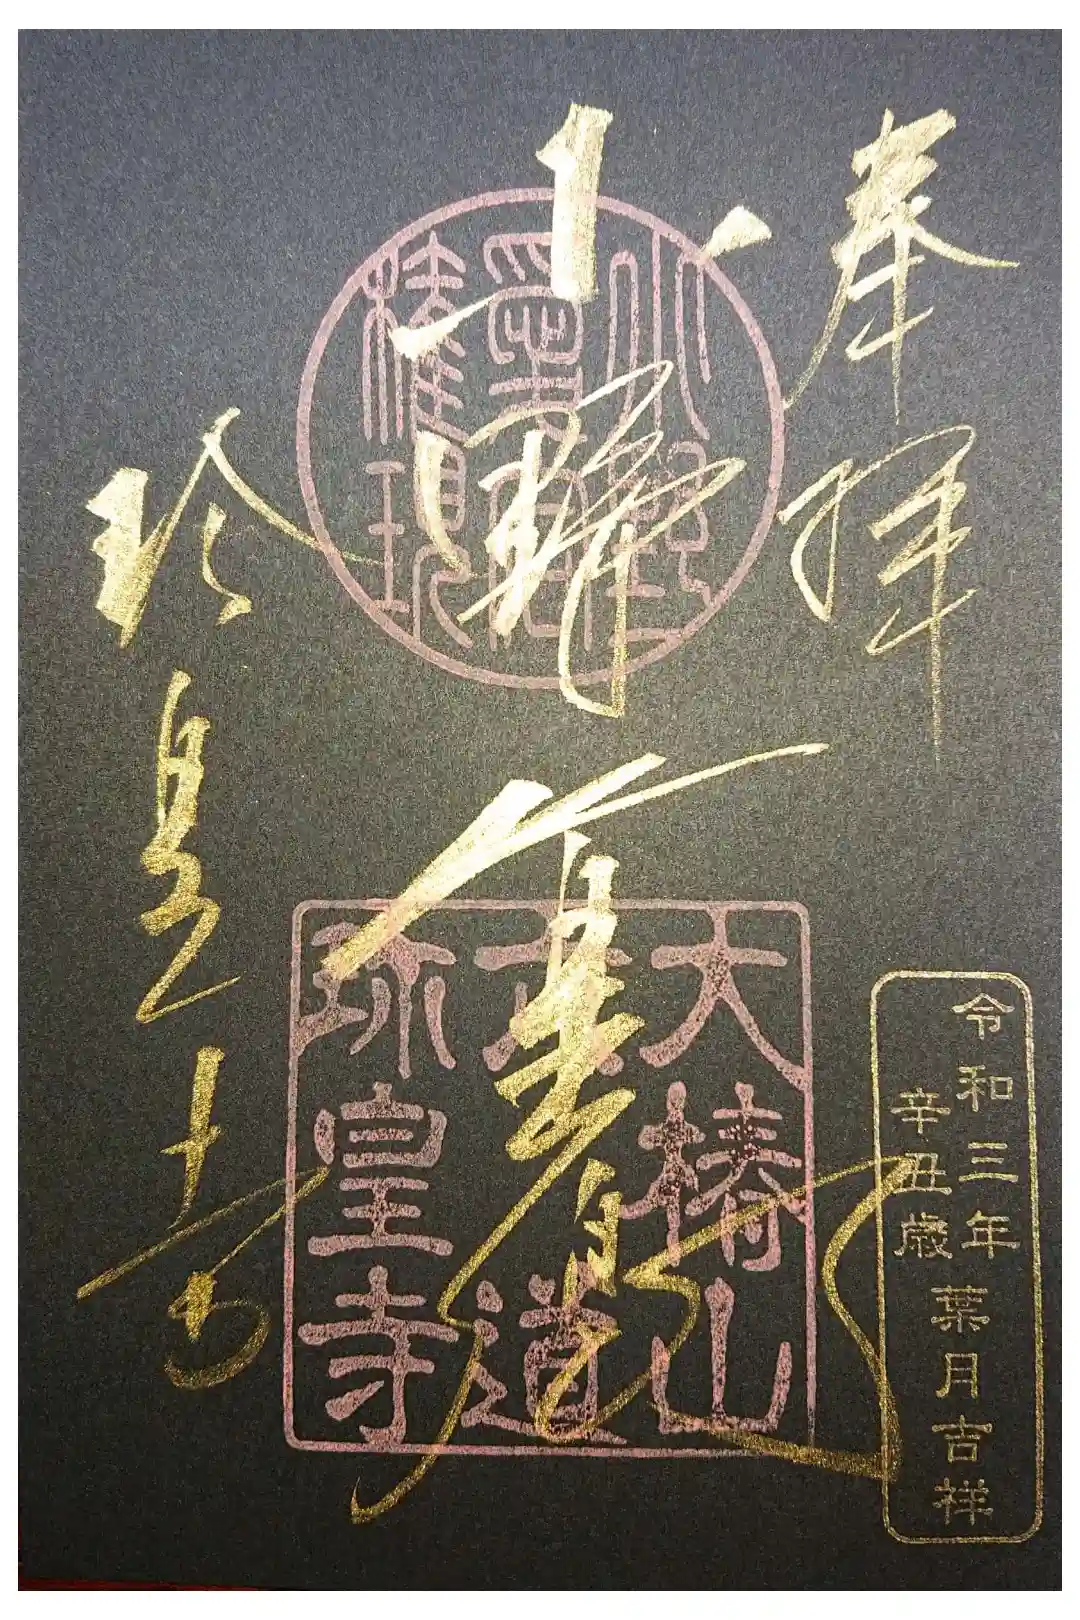 奉拝
令和三年
辛丑歳
葉月吉祥
小野篁
珍皇寺
大椿山
六道
珍皇寺